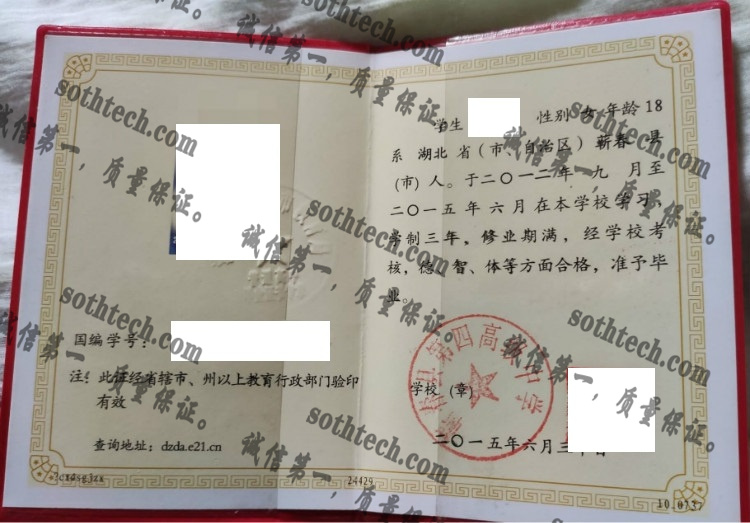 国编学号：
注：此证经省辖市、州以上教育行政部门验印
有效
查询地址：dzda.e21.cn
24429
学生 性别 女 年龄 18
系 湖北 省（市、自治区） 蕲春 县
（市）人。于二〇一二年 九 月至
二〇一五年 六 月在本学校学习，
学制三年，修业期满，经学校考
核，德、智、体等方面合格，准予毕
业。
第四高级中学
学校（章）
二〇一五年六月三十日
10.0737
sothtech.com
诚信第一，质量保证。
sothtech.com
诚信第一，质量保证。
sothtech.com
诚信第一，质量保证。
sothtech.com
诚信第一，质量保证。
sothtech.com
诚信第一，质量保证。
sothtech.com
诚信第一，质量保证。
sothtech.com
诚信第一，质量保证。
sothtech.com
诚信第一，质量保证。